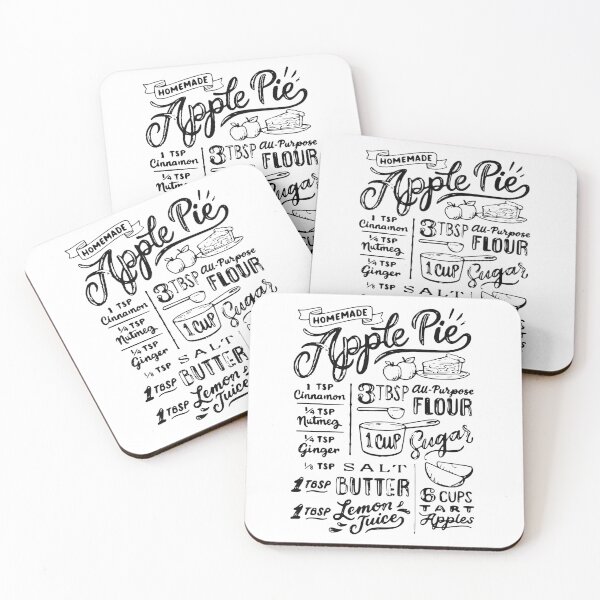 HOMEMADE
Apple Pie
1 TSP
Cinnamon
¼ TSP
Nutmeg
3 TBSP All-Purpose
FLOUR
Sugar
HOMEMADE
Apple Pie
1 TSP
Cinnamon
¼ TSP
Nutmeg
¼ TSP
Ginger
3 TBSP All-Purpose
FLOUR
1 CUP Sugar
SALT
HOMEMADE
Apple Pie
1 TSP
Cinnamon
¼ TSP
Nutmeg
¼ TSP
Ginger
3 TBSP All-Purpose
FLOUR
1 CUP Sugar
⅛ TSP SALT
1 TBSP BUTTER
1 TBSP Lemon
Juice
HOMEMADE
Apple Pie
1 TSP
Cinnamon
¼ TSP
Nutmeg
¼ TSP
Ginger
3 TBSP All-Purpose
FLOUR
1 CUP Sugar
⅛ TSP SALT
1 TBSP BUTTER
1 TBSP Lemon
Juice
6 CUPS
TART
Apples